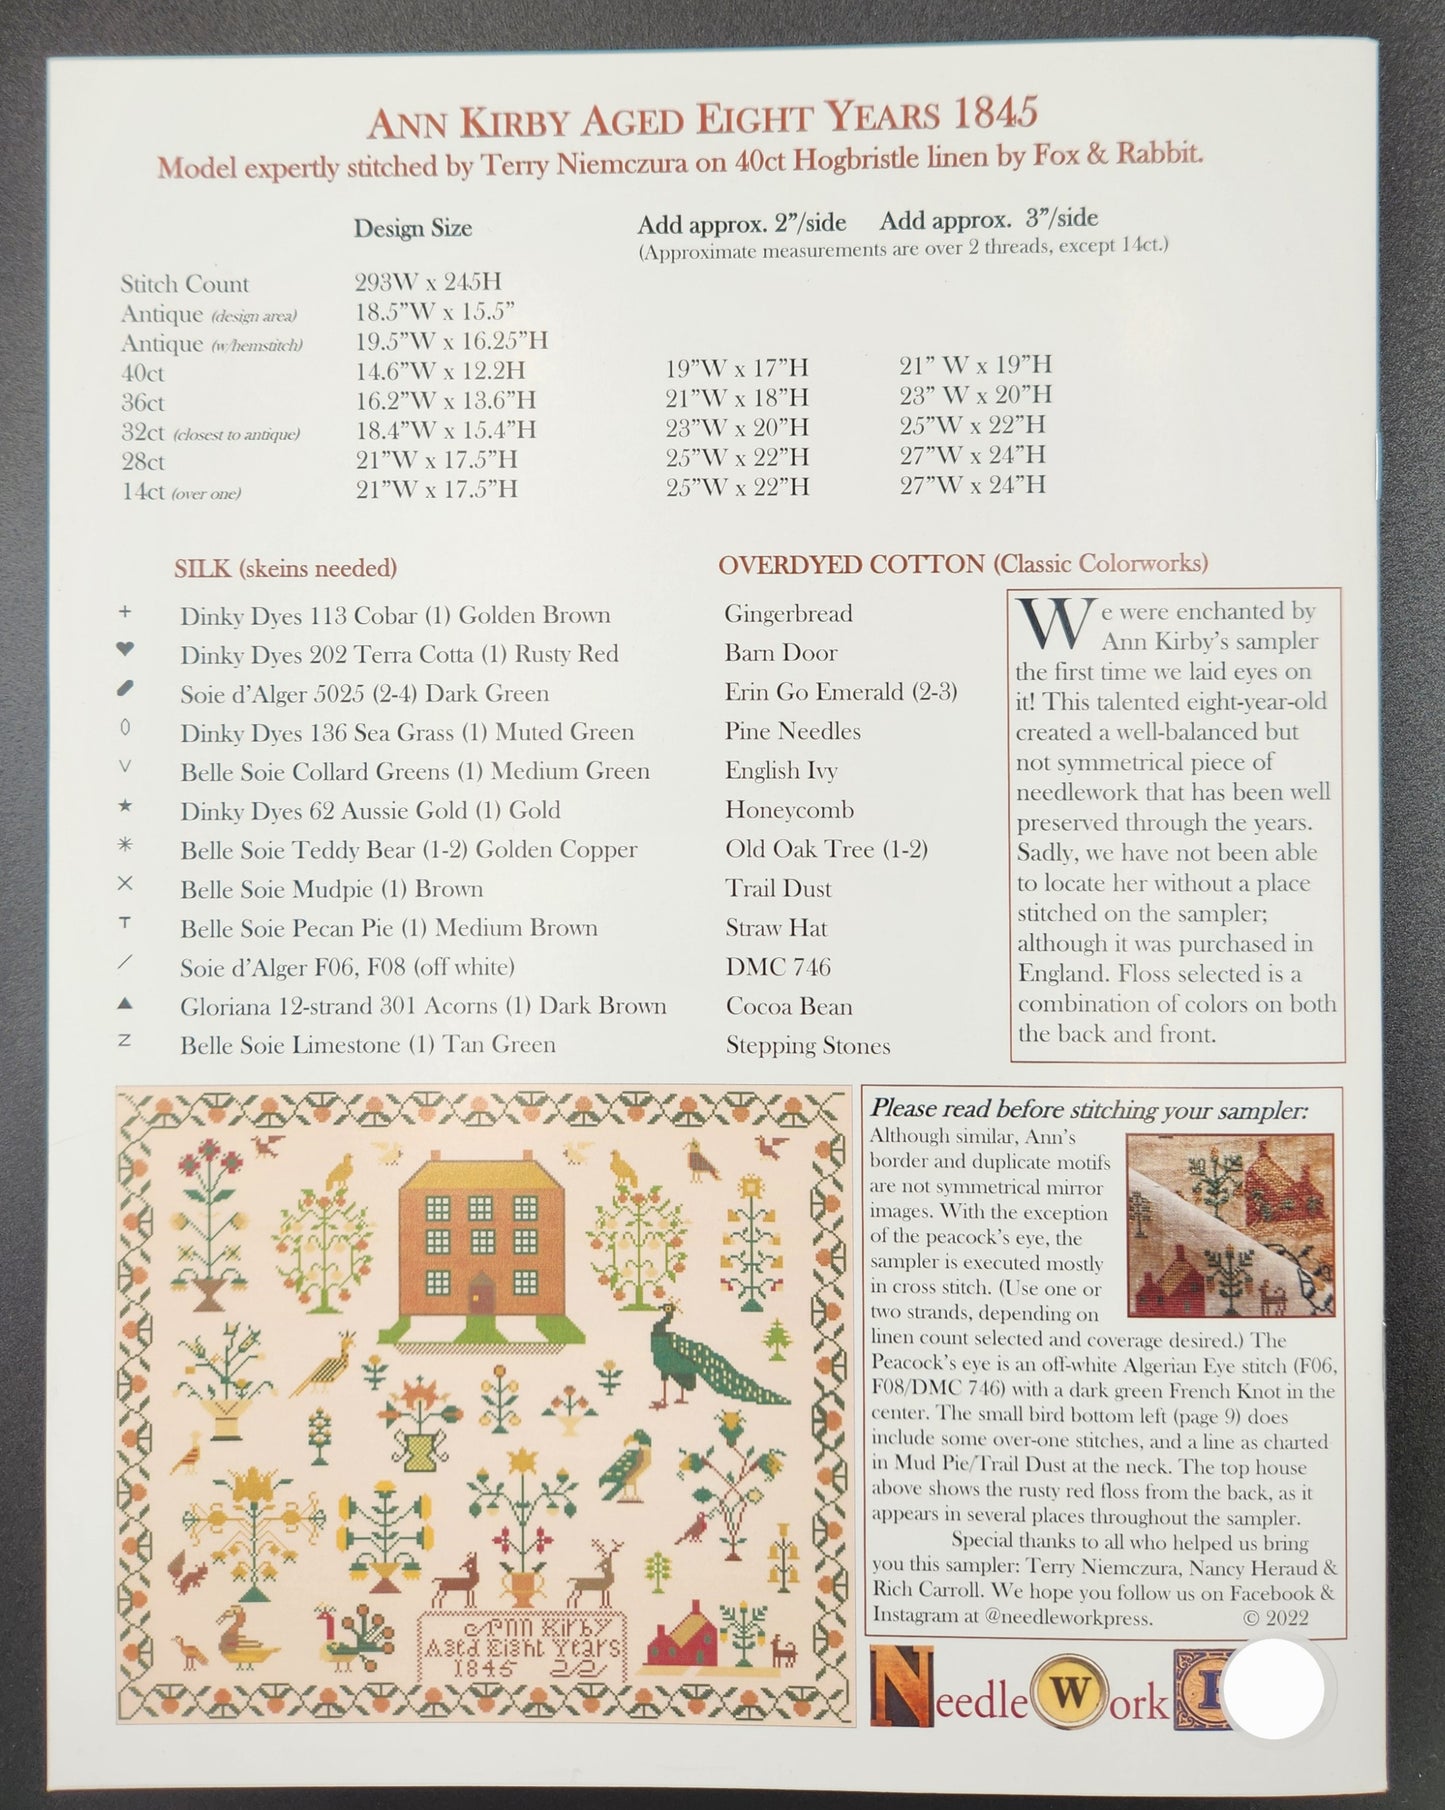 ANN KIRBY AGED EIGHT YEARS 1845
Model expertly stitched by Terry Niemczura on 40ct Hogbristle linen by Fox & Rabbit.
Design Size Add approx. 2”/side Add approx. 3”/side
(Approximate measurements are over 2 threads, except 14ct.)
Stitch Count 293W x 245H
Antique (design area) 18.5”W x 15.5”
Antique (w/hemstitch) 19.5”W x 16.25”H
40ct 14.6”W x 12.2H 19”W x 17”H 21” W x 19”H
36ct 16.2”W x 13.6”H 21”W x 18”H 23” W x 20”H
32ct (closest to antique) 18.4”W x 15.4”H 23”W x 20”H 25”W x 22”H
28ct 21”W x 17.5”H 25”W x 22”H 27”W x 24”H
14ct (over one) 21”W x 17.5”H 25”W x 22”H 27”W x 24”H
SILK (skeins needed) OVERDYED COTTON (Classic Colorworks)
+ Dinky Dyes 113 Cobar (1) Golden Brown Gingerbread
♥ Dinky Dyes 202 Terra Cotta (1) Rusty Red Barn Door
Soie d’Alger 5025 (2-4) Dark Green Erin Go Emerald (2-3)
Dinky Dyes 136 Sea Grass (1) Muted Green Pine Needles
V Belle Soie Collard Greens (1) Medium Green English Ivy
★ Dinky Dyes 62 Aussie Gold (1) Gold Honeycomb
* Belle Soie Teddy Bear (1-2) Golden Copper Old Oak Tree (1-2)
X Belle Soie Mudpie (1) Brown Trail Dust
T Belle Soie Pecan Pie (1) Medium Brown Straw Hat
/ Soie d’Alger F06, F08 (off white) DMC 746
▲ Gloriana 12-strand 301 Acorns (1) Dark Brown Cocoa Bean
Z Belle Soie Limestone (1) Tan Green Stepping Stones
We were enchanted by
Ann Kirby’s sampler
the first time we laid eyes on
it! This talented eight-year-old
created a well-balanced but
not symmetrical piece of
needlework that has been well
preserved through the years.
Sadly, we have not been able
to locate her without a place
stitched on the sampler;
although it was purchased in
England. Floss selected is a
combination of colors on both
the back and front.
Ann Kirby
Aged Eight Years
1845
Please read before stitching your sampler:
Although similar, Ann’s
border and duplicate motifs
are not symmetrical mirror
images. With the exception
of the peacock’s eye, the
sampler is executed mostly
in cross stitch. (Use one or
two strands, depending on
linen count selected and coverage desired.) The
Peacock’s eye is an off-white Algerian Eye stitch (F06,
F08/DMC 746) with a dark green French Knot in the
center. The small bird bottom left (page 9) does
include some over-one stitches, and a line as charted
in Mud Pie/Trail Dust at the neck. The top house
above shows the rusty red floss from the back, as it
appears in several places throughout the sampler.
Special thanks to all who helped us bring
you this sampler: Terry Niemczura, Nancy Heraud &
Rich Carroll. We hope you follow us on Facebook &
Instagram at @needleworkpress. © 2022
NeedleWork